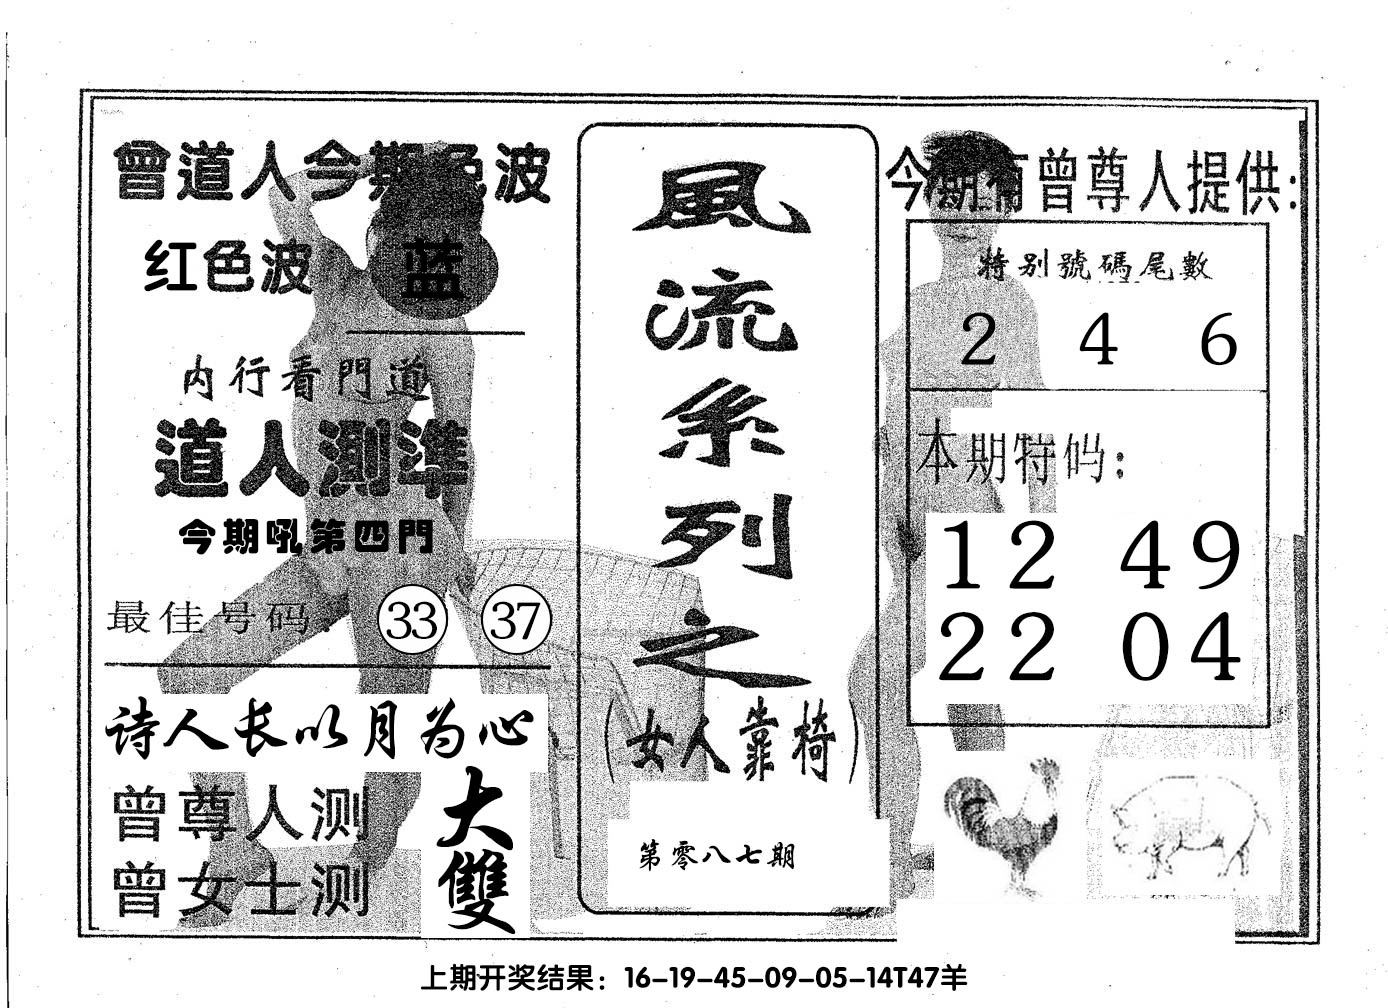 曾道人今期色波
红色波 蓝
内行看門道
道人測準
今期吼第四門
最佳号码: 33 37
诗人长以月为心
曾尊人测 大
曾女士测 雙
風流系列之
(女人靠椅)
第零八七期
今期有曾尊人提供:
特别號碼尾數
2 4 6
本期特码:
12 49
22 04
上期开奖结果：16-19-45-09-05-14T47羊